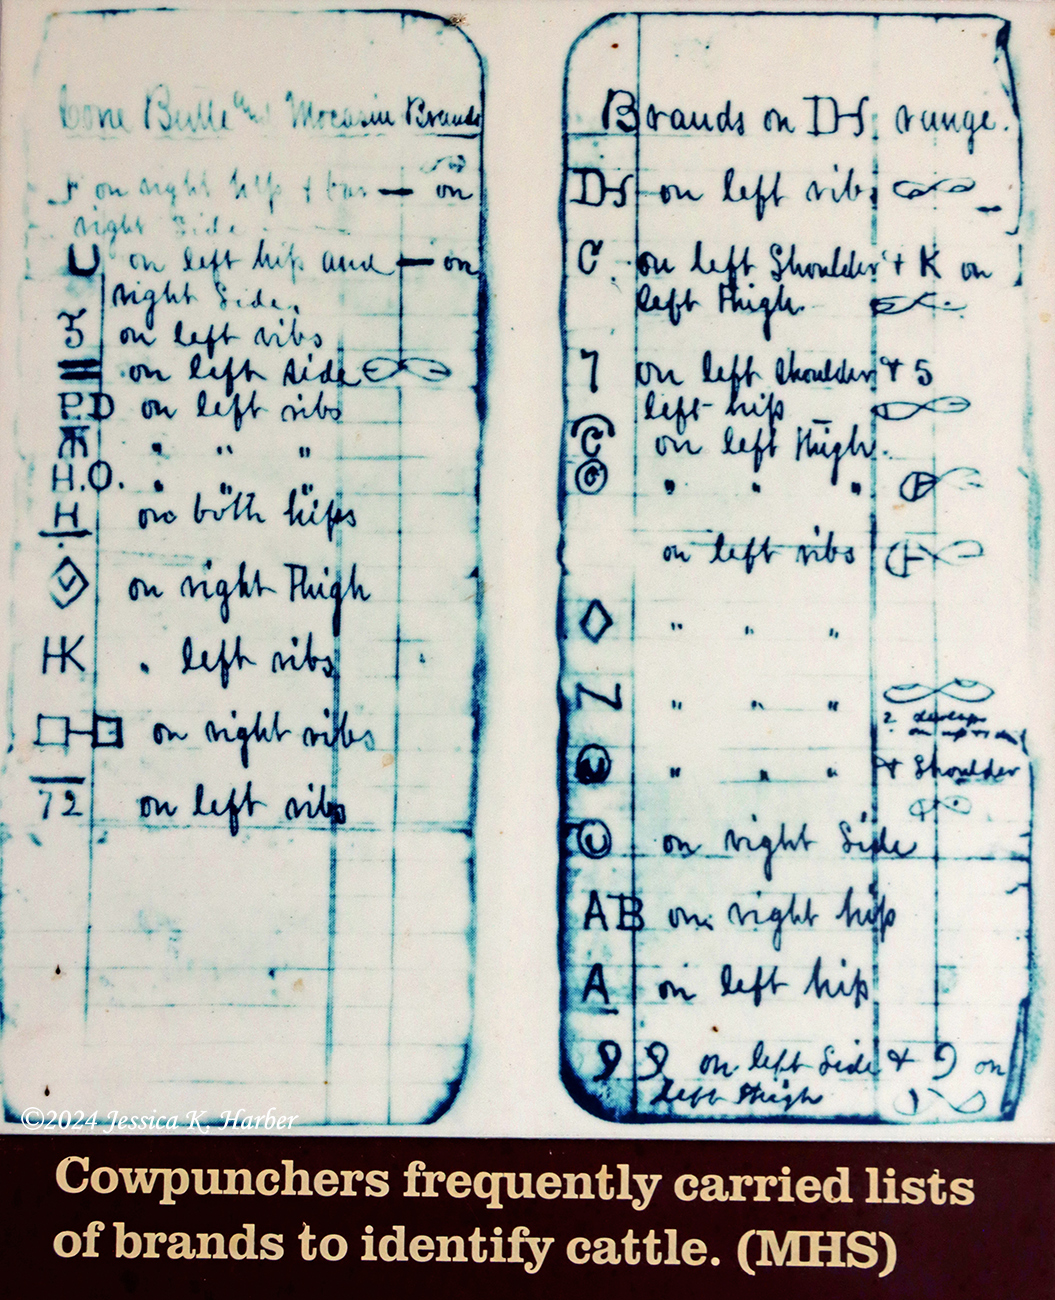 Cone Butte and Mocasin Brands
F on right hip & bar — on
right Side
U on left hip and — on
right Side.
on left ribs
= on left side
P.D on left ribs
" " "
H.O. " " "
H on both hips
on right Thigh
HK " left ribs
□-□ on right ribs
72 on left ribs
Brands on DS range.
DS on left ribs
C on left Shoulder & K on
left Thigh.
7 on left shoulder & 5
left hip
C on left Thigh.
© " " "
on left ribs
◇ " " "
Z " " "
" " " & Shoulder
on right Side
AB on right hip
A on left hip
9 9 on left Side & 9 on
left Thigh
©2024 Jessica K. Harber
Cowpunchers frequently carried lists
of brands to identify cattle. (MHS)